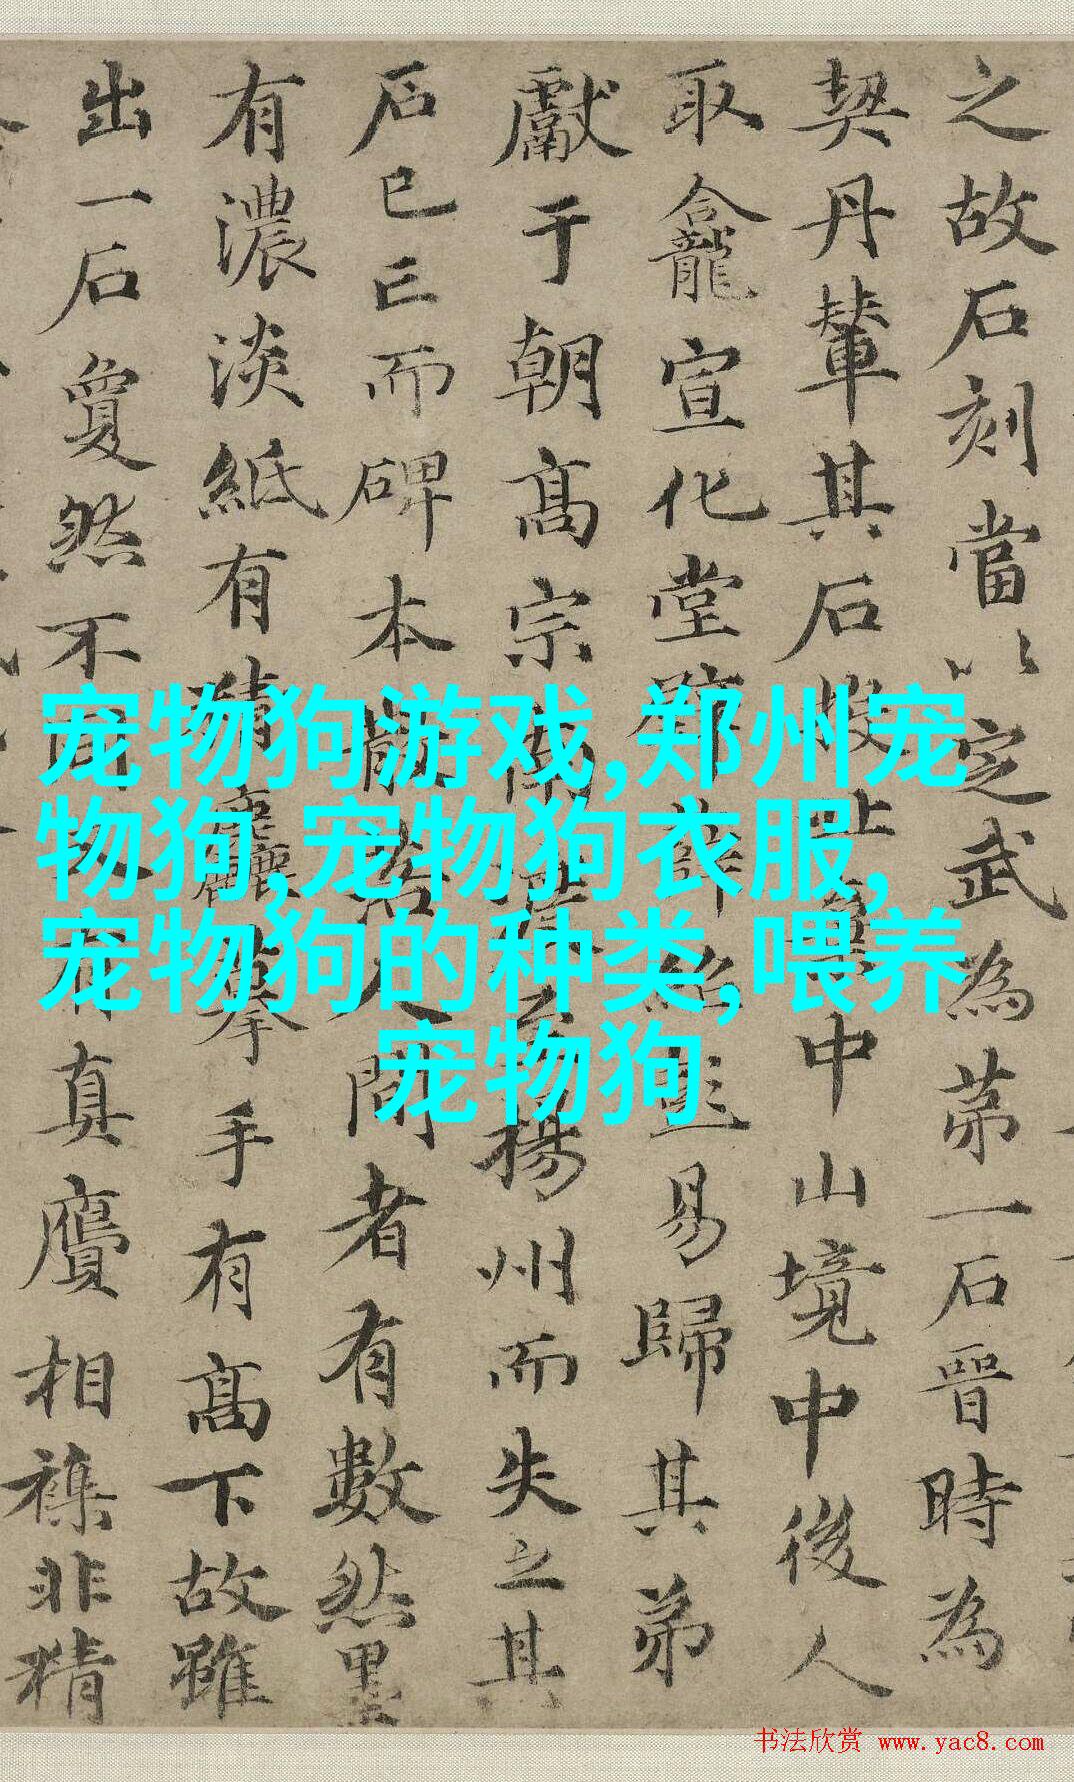 之故石刻當以定武為苐一石晉時為
契丹輦其石止中山境中後人
取龕宣化堂薛紹彭易歸其弟
獻于朝高宗南渡至揚州而失之其
石已亡而碑本散落人間者有數然墨
有濃淡紙有精麤摹手有高下故雖
出一石夐然不同有真贋相襍非精
宠物狗游戏,郑州宠
物狗,宠物狗衣服,
宠物狗的种类,喂养
宠物狗
书法欣赏 www.yac8.com